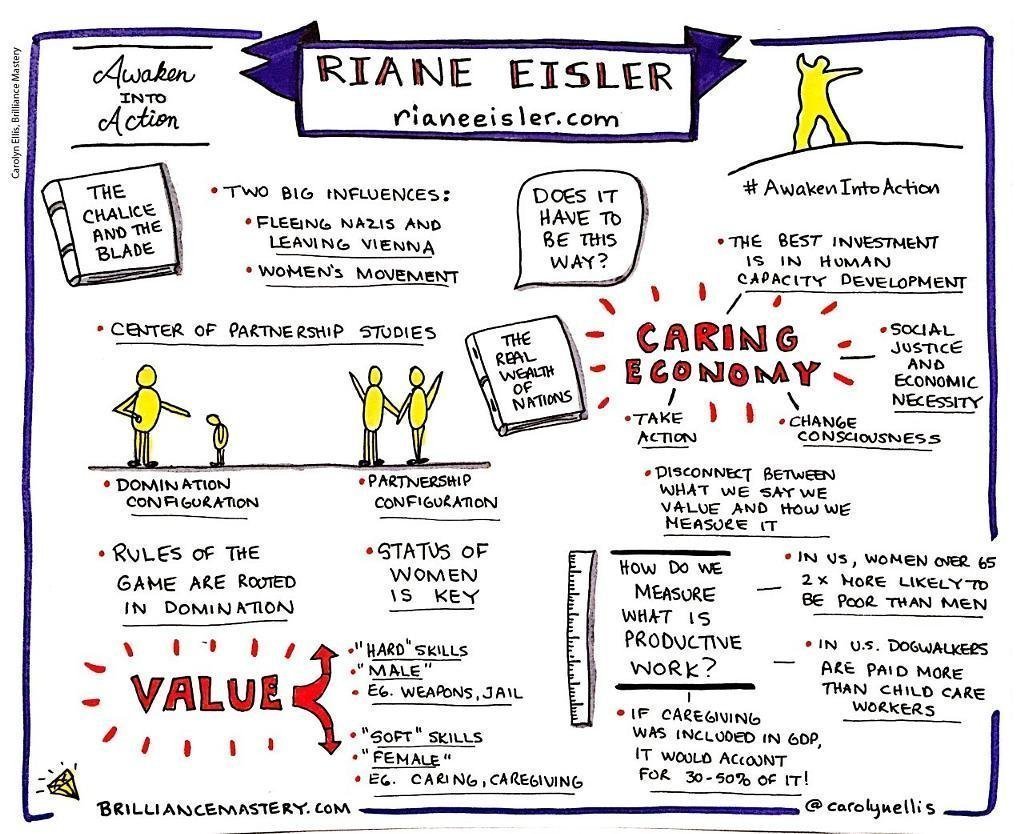 Carolyn Ellis, Brilliance Mastery
Awaken
INTO
Action
RIANE EISLER
rianeeisler.com
# AwakenIntoAction
THE
CHALICE
AND THE
BLADE
• TWO BIG INFLUENCES:
• FLEEING NAZIS AND
LEAVING VIENNA
• WOMEN'S MOVEMENT
DOES IT
HAVE TO
BE THIS
WAY?
• THE BEST INVESTMENT
IS IN HUMAN
CAPACITY DEVELOPMENT
• CENTER OF PARTNERSHIP STUDIES
THE
REAL
WEALTH
OF
NATIONS
CARING
ECONOMY
• SOCIAL
JUSTICE
AND
ECONOMIC
NECESSITY
• TAKE
ACTION
• CHANGE
CONSCIOUSNESS
• DOMINATION
CONFIGURATION
• PARTNERSHIP
CONFIGURATION
• DISCONNECT BETWEEN
WHAT WE SAY WE
VALUE AND HOW WE
MEASURE IT
• RULES OF THE
GAME ARE ROOTED
IN DOMINATION
• STATUS OF
WOMEN
IS KEY
HOW DO WE
MEASURE
WHAT IS
PRODUCTIVE
WORK?
• IN US, WOMEN OVER 65
2X MORE LIKELY TO
BE POOR THAN MEN
• IN U.S. DOGWALKERS
ARE PAID MORE
THAN CHILD CARE
WORKERS
• IF CAREGIVING
WAS INCLUDED IN GDP,
IT WOULD ACCOUNT
FOR 30-50% OF IT!
VALUE
• "HARD" SKILLS
• "MALE"
• EG. WEAPONS, JAIL
• "SOFT" SKILLS
• "FEMALE"
• EG. CARING, CAREGIVING
BRILLIANCEMASTERY.COM
@carolynellis